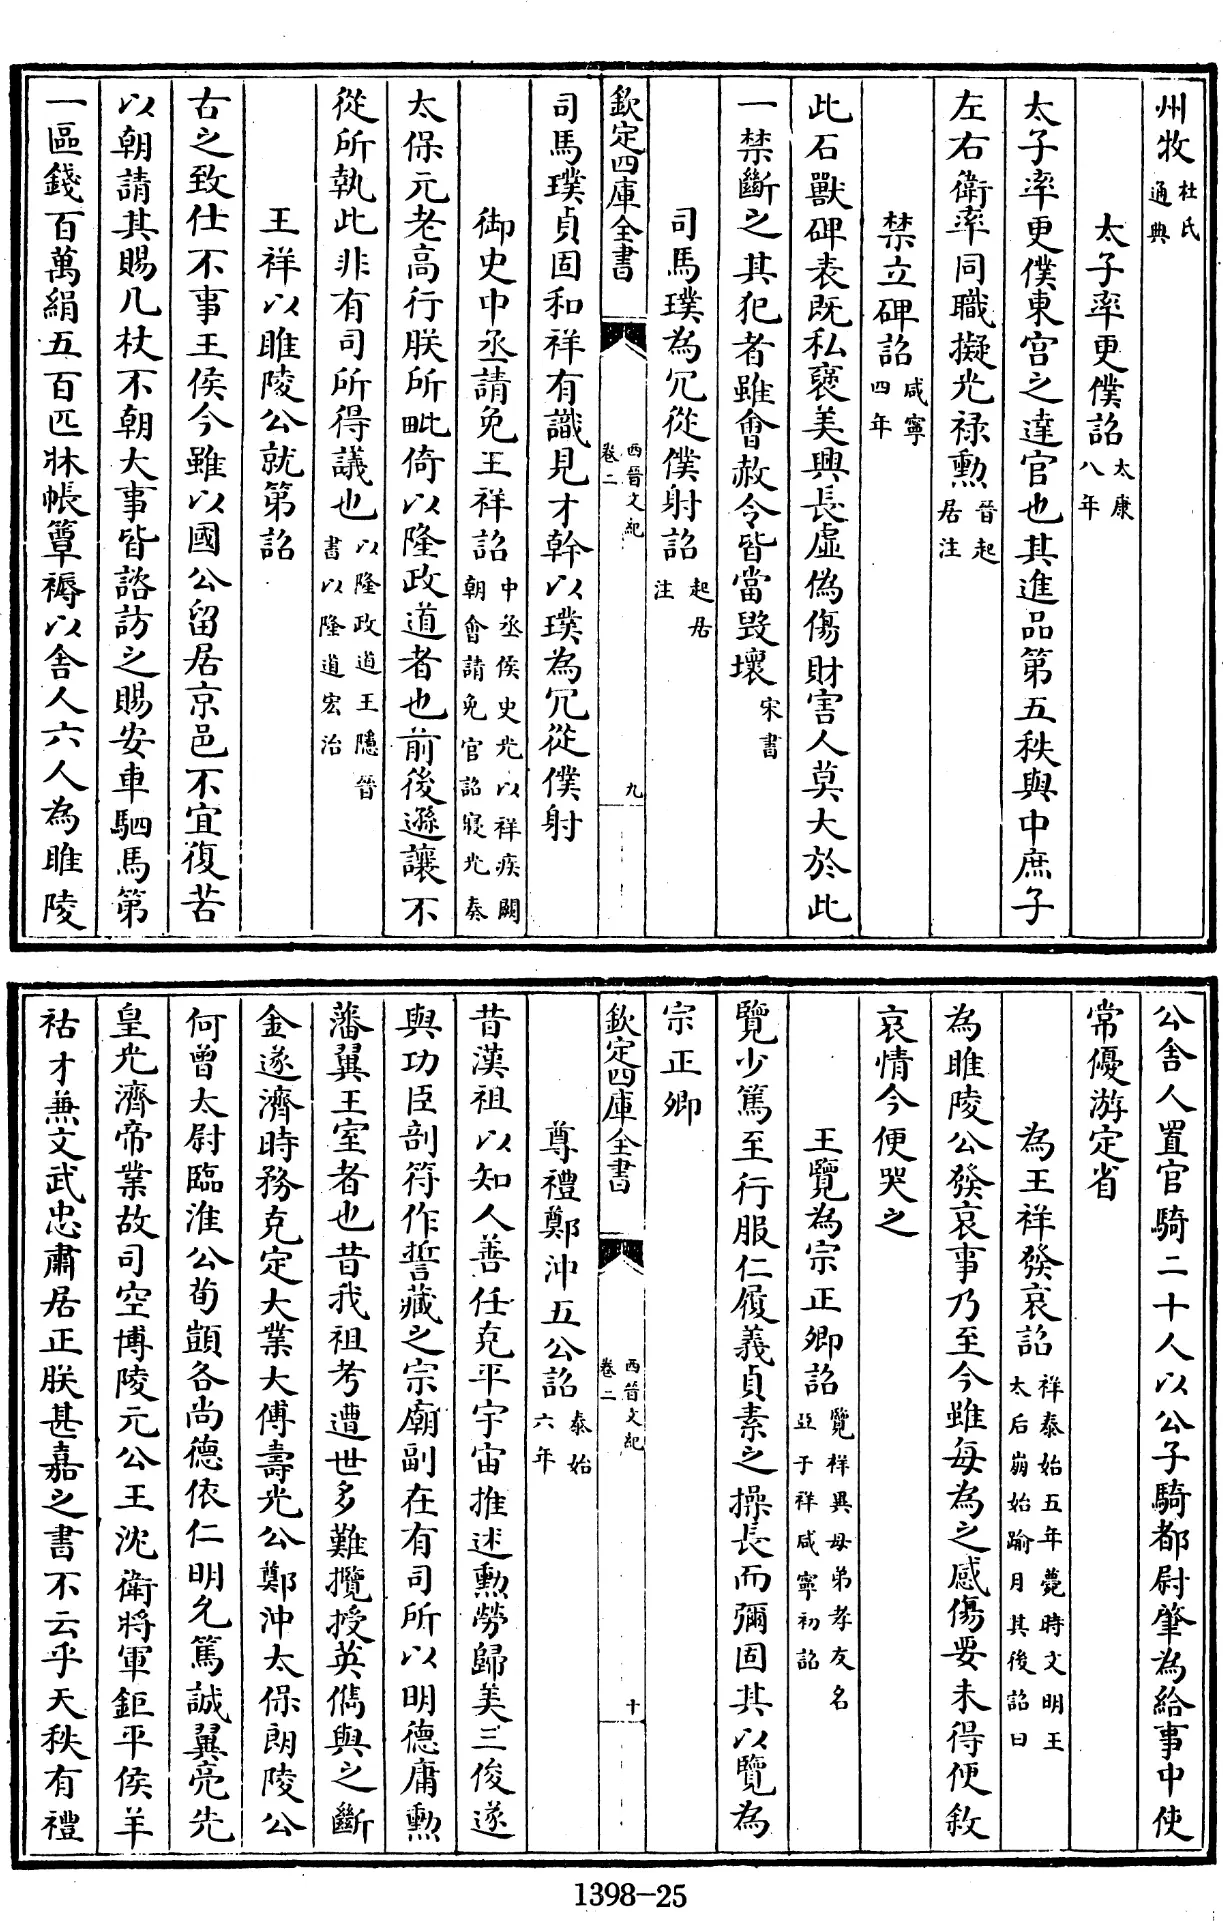 州牧杜氏通典
太子率更僕詔太康八年
太子率更僕東宮之達官也其進品第五秩與中庶子
左右衛率同職擬光祿勳晉起居注
禁立碑詔咸寧四年
此石獸碑表既私褒美興長虛偽傷財害人莫大於此
一禁斷之其犯者雖會赦令皆當毀壞宋書
司馬璞為冗從僕射詔起居注
欽定四庫全書
西晉文紀
卷二
九
司馬璞貞固和祥有識見才幹以璞為冗從僕射
御史中丞請免王祥詔中丞侯史光以祥疾闕朝會請免官詔寢光奏
太保元老高行朕所毗倚以隆政道者也前後遜讓不
從所執此非有司所得議也以隆政道王隱晉書以隆道宏治
王祥以睢陵公就第詔
古之致仕不事王侯今雖以國公留居京邑不宜復苦
以朝請其賜几杖不朝大事皆諮訪之賜安車駟馬第
一區錢百萬絹五百匹牀帳簟褥以舍人六人為睢陵
公舍人置官騎二十人以公子騎都尉肇為給事中使
常優游定省
為王祥發哀詔祥泰始五年薨時文明王太后崩始踰月其後詔曰
為睢陵公發哀事乃至今雖每為之感傷要未得便敘
哀情今便哭之
王覽為宗正卿詔覽祥異母弟孝友名亞于祥咸寧初詔
覽少篤至行服仁履義貞素之操長而彌固其以覽為
宗正卿
欽定四庫全書
西晉文紀
卷二
十
尊禮鄭沖五公詔泰始六年
昔漢祖以知人善任克平宇宙推述勲勞歸美三俊遂
與功臣剖符作誓藏之宗廟副在有司所以明德庸勲
藩翼王室者也昔我祖考遭世多難攬授英儁與之斷
金遂濟時務克定大業大傅壽光公鄭沖太保朗陵公
何曾太尉臨淮公荀顗各尚德依仁明允篤誠翼亮先
皇光濟帝業故司空博陵元公王沈衛將軍鉅平侯羊
祜才兼文武忠肅居正朕甚嘉之書不云乎天秩有禮
1398-25